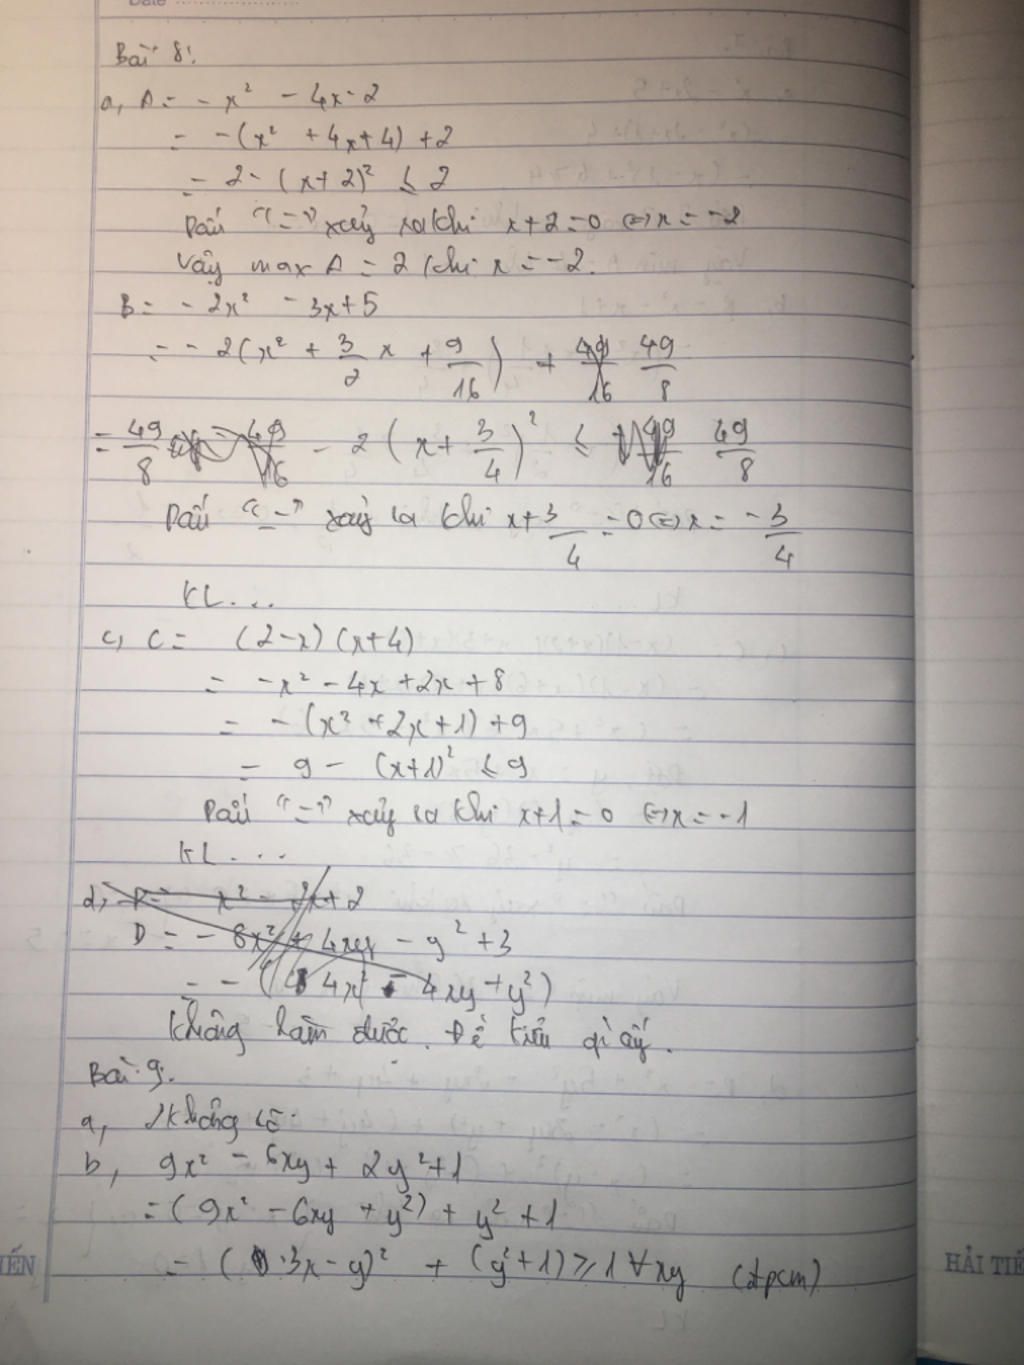 Date
Bài 8:
a, A = - x² - 4x - 2
= -(x² + 4x + 4) + 2
= 2 - (x + 2)² ≤ 2
Dấu "=" xảy ra khi x + 2 = 0 ⇔ x = -2
Vậy max A = 2 khi x = -2.
B = - 2x² - 3x + 5
= - 2(x² + 3/2 x + 9/16) + 49/8
= 49/8 - 2(x + 3/4)² ≤ 49/8
Dấu "=" xảy ra khi x + 3/4 = 0 ⇔ x = -3/4
KL...
c, C = (2-x)(x+4)
= -x² - 4x + 2x + 8
= -(x² + 2x + 1) + 9
= 9 - (x+1)² ≤ 9
Dấu "=" xảy ra khi x+1 = 0 ⇔ x = -1
KL...
d,
D = - 8x² + 4xy - y² + 3
= - (4x² - 4xy + y²)
Không làm được. Đề kiểu gì ấy.
Bài 9.
a, Không
b, 9x² - 6xy + 2y² + 1
= (9x² - 6xy + y²) + y² + 1
= (3x - y)² + (y² + 1) ≥ 1 ∀ xy (đpcm)
IẾN
HẢI TIẾ